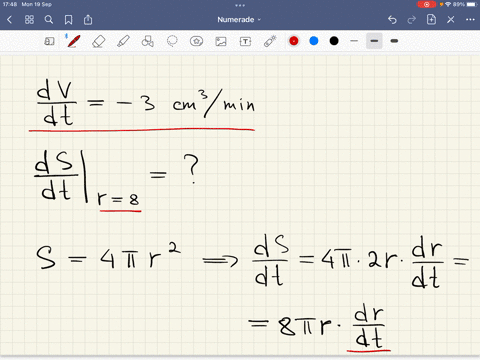 17:48 Mon 19 Sep 89%
Numerade
dV/dt = -3 cm³/min
dS/dt |r=8 = ?
S = 4πr² ⟹ dS/dt = 4π · 2r · dr/dt =
= 8πr · dr/dt